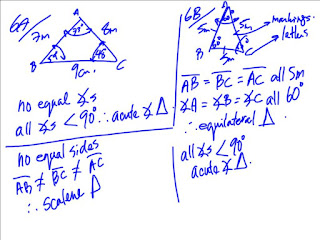 6A/
A
7m
8m
B
C
9cm
no equal ∡s
all ∡s < 90° ∴ acute ∡ Δ
no equal sides
AB ≠ BC ≠ AC
∴ scalene Δ
6B/
A
60°
5m
5m
markings
letters
B
60°
60°
C
5m
AB = BC = AC all 5m
∡A = ∡B = ∡C all 60°
∴ equilateral Δ.
all ∡s < 90°
acute ∡ Δ.